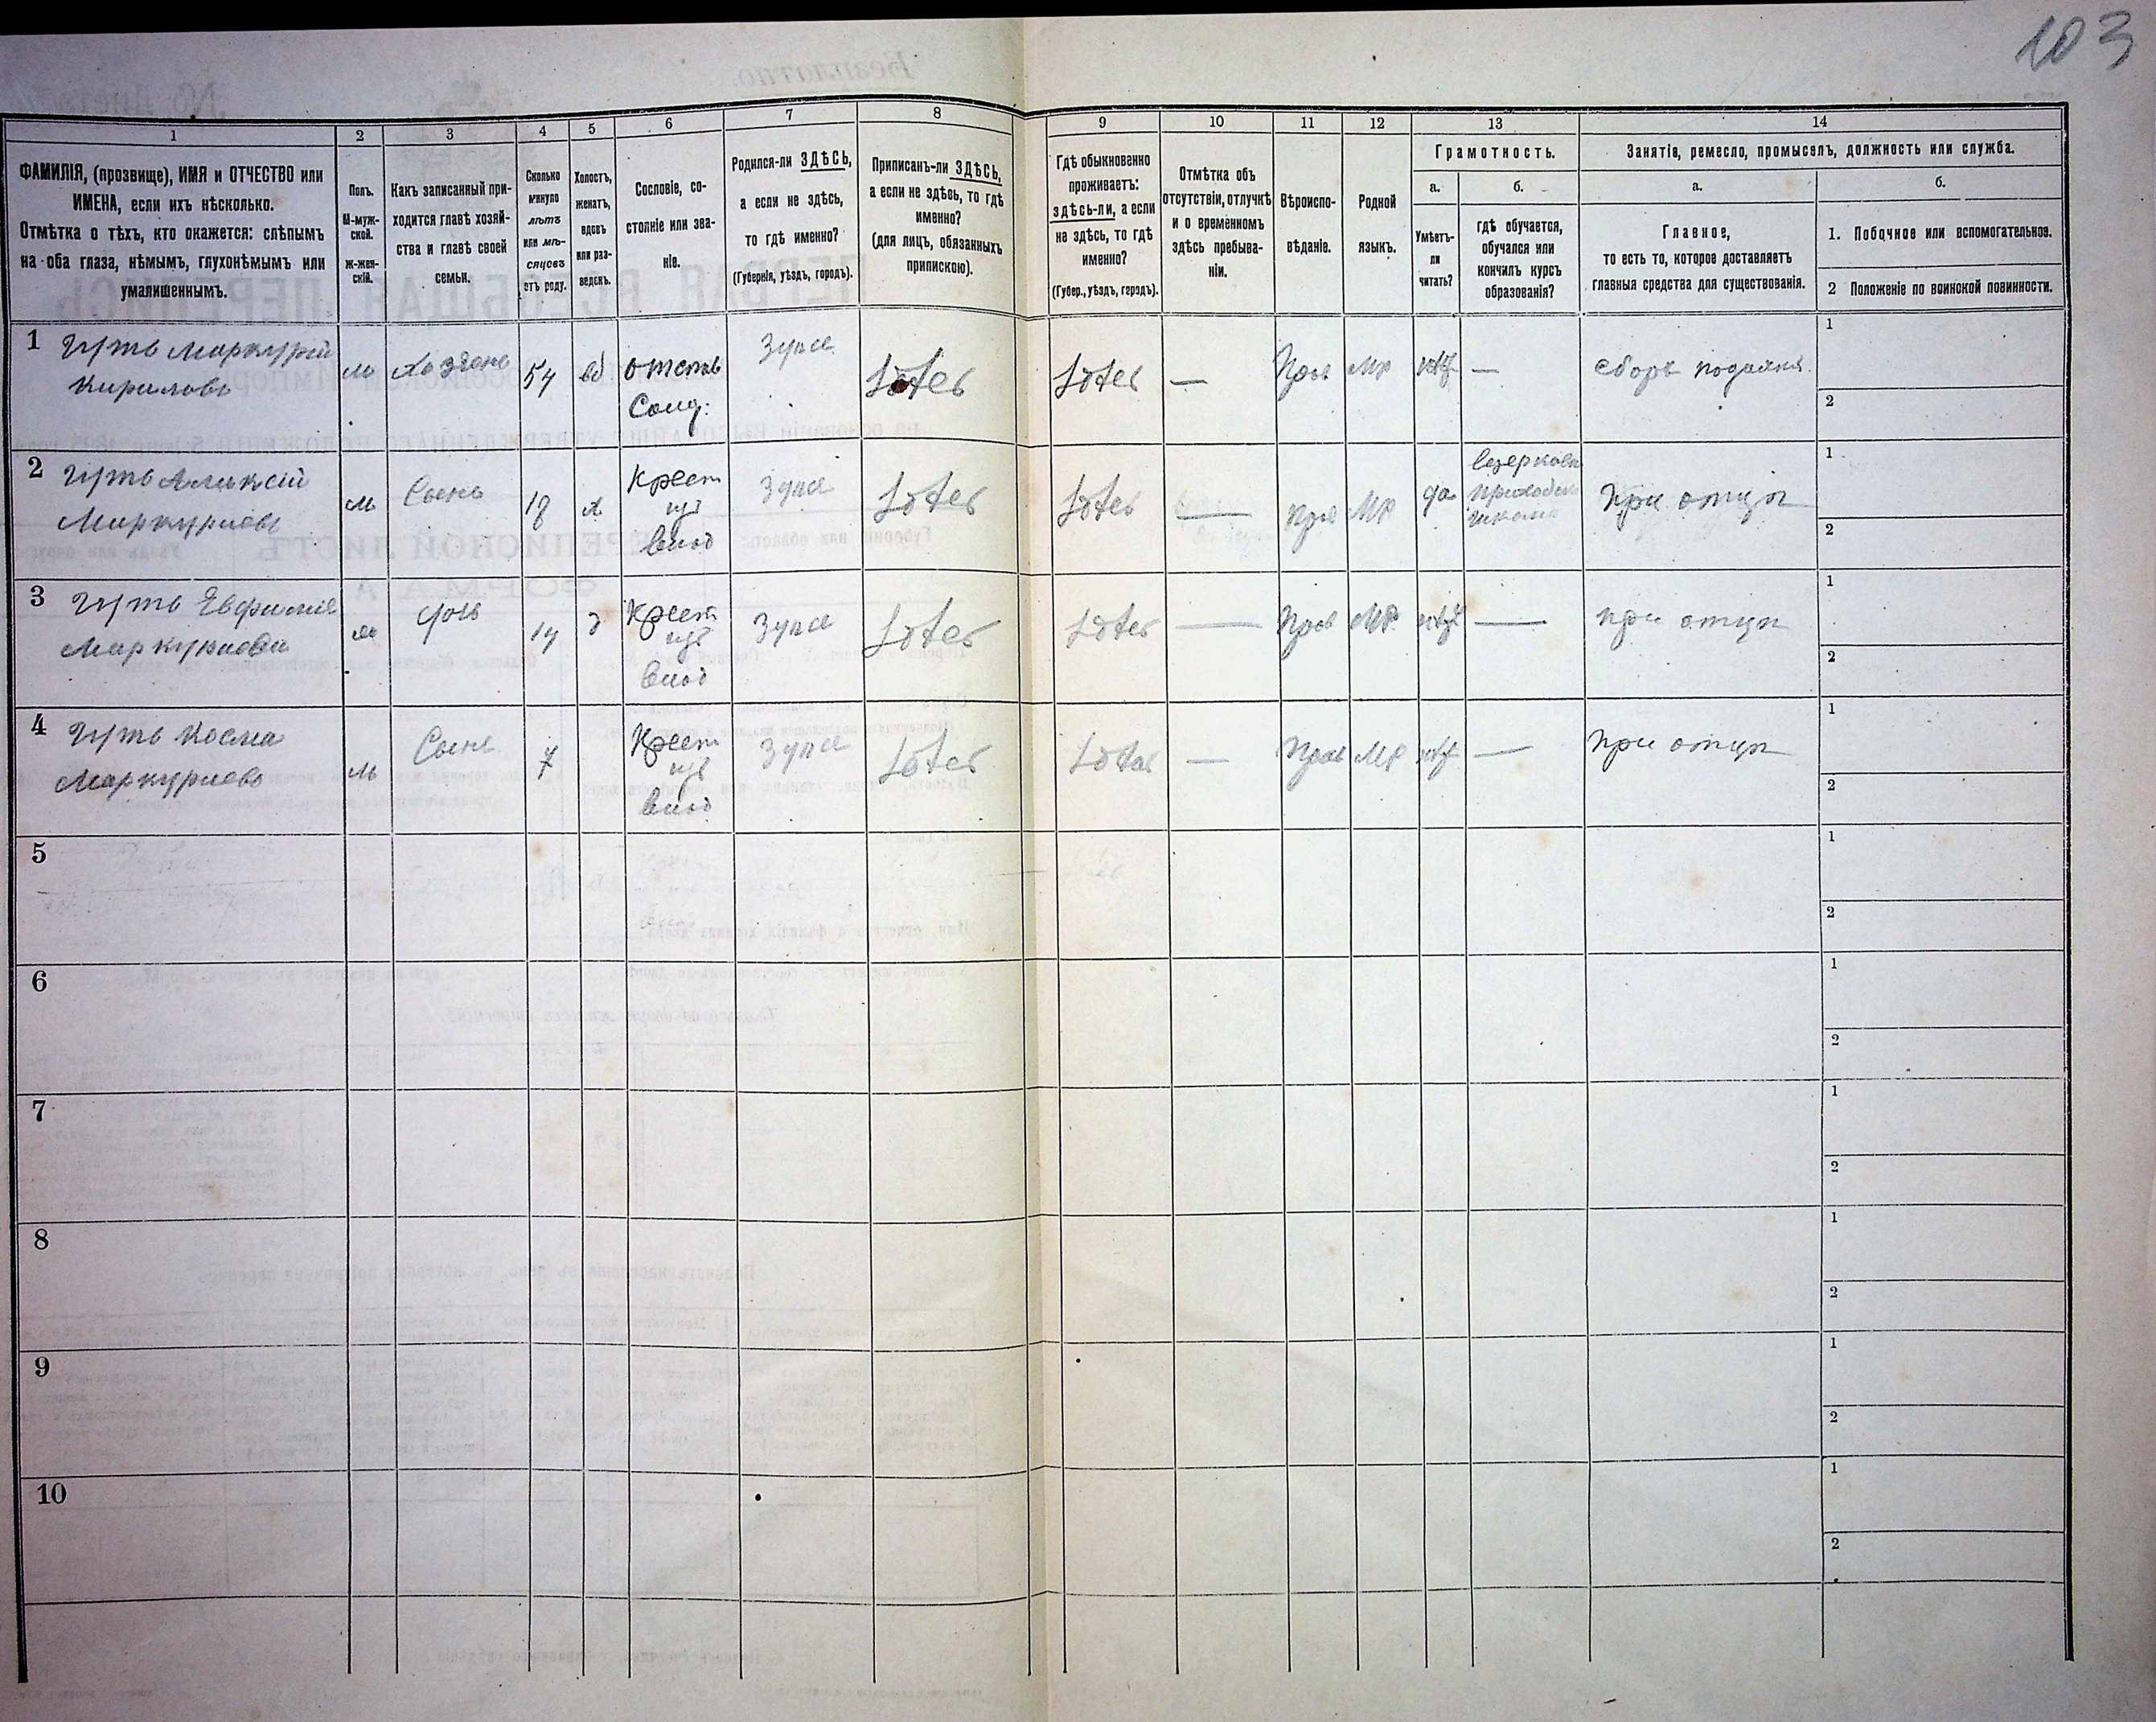 103
1
2
3
4
5
6
7
8
9
10
11
12
13
14
ФАМИЛІЯ, (прозвище), ИМЯ и ОТЧЕСТВО или
ИМЕНА, если ихъ нѣсколько.
Отмѣтка о тѣхъ, кто окажется: слѣпымъ
на оба глаза, нѣмымъ, глухонѣмымъ или
умалишеннымъ.
Полъ.
М-муж-
ской.
ж-жен-
скій.
Какъ записанный при-
ходится главѣ хозяй-
ства и главѣ своей
семьи.
Сколько
минуло
лѣтъ
или мѣ-
сяцевъ
отъ роду.
Холостъ,
женатъ,
вдовъ
или раз-
веденъ.
Сословіе, со-
стояніе или зва-
ніе.
Родился-ли ЗДѢСЬ,
а если не здѣсь,
то гдѣ именно?
(Губернія, уѣздъ, городъ).
Приписанъ-ли ЗДѢСЬ,
а если не здѣсь, то гдѣ
именно?
(для лицъ, обязанныхъ
припискою).
Гдѣ обыкновенно
проживаетъ:
здѣсь-ли, а если
не здѣсь, то гдѣ
именно?
(Губер., уѣздъ, городъ).
Отмѣтка объ
отсутствіи, отлучкѣ
и о временномъ
здѣсь пребыва-
ніи.
Вѣроиспо-
вѣданіе.
Родной
языкъ.
Грамотность.
а.
Умѣетъ-
ли
читать?
б.
гдѣ обучается,
обучался или
кончилъ курсъ
образованія?
Занятія, ремесло, промыселъ, должность или служба.
а.
Главное,
то есть то, которое доставляетъ
главныя средства для существованія.
б.
1. Побочное или вспомогательное.
2 Положеніе по воинской повинности.
1 Гуть Меркурій
Кириловъ
м
хозяинъ
54
вд
отстав
Солд:
Здѣсь
Здѣсь
—
Прав
Мр
нѣт
—
сборъ подаянія
1
2
2 Гуть Алексѣй
Меркуріевъ
м
Сынъ
18
х
Крест
изъ
влад
Здѣсь
Здѣсь
—
Прав
Мр
да
Церковно
приходская
школа
При отцѣ
1
2
3 Гуть Евфимія
Меркуріева
ж
дочь
14
д
Крест
изъ
влад
Здѣсь
Здѣсь
—
Прав
Мр
нѣт
—
при отцѣ
1
2
4 Гуть Косма
Меркуріевъ
м
Сынъ
7
Крест
изъ
влад
Здѣсь
Здѣсь
—
Прав
Мр
нѣт
—
При отцѣ
1
2
5
1
2
6
1
2
7
1
2
8
1
2
9
1
2
10
1
2